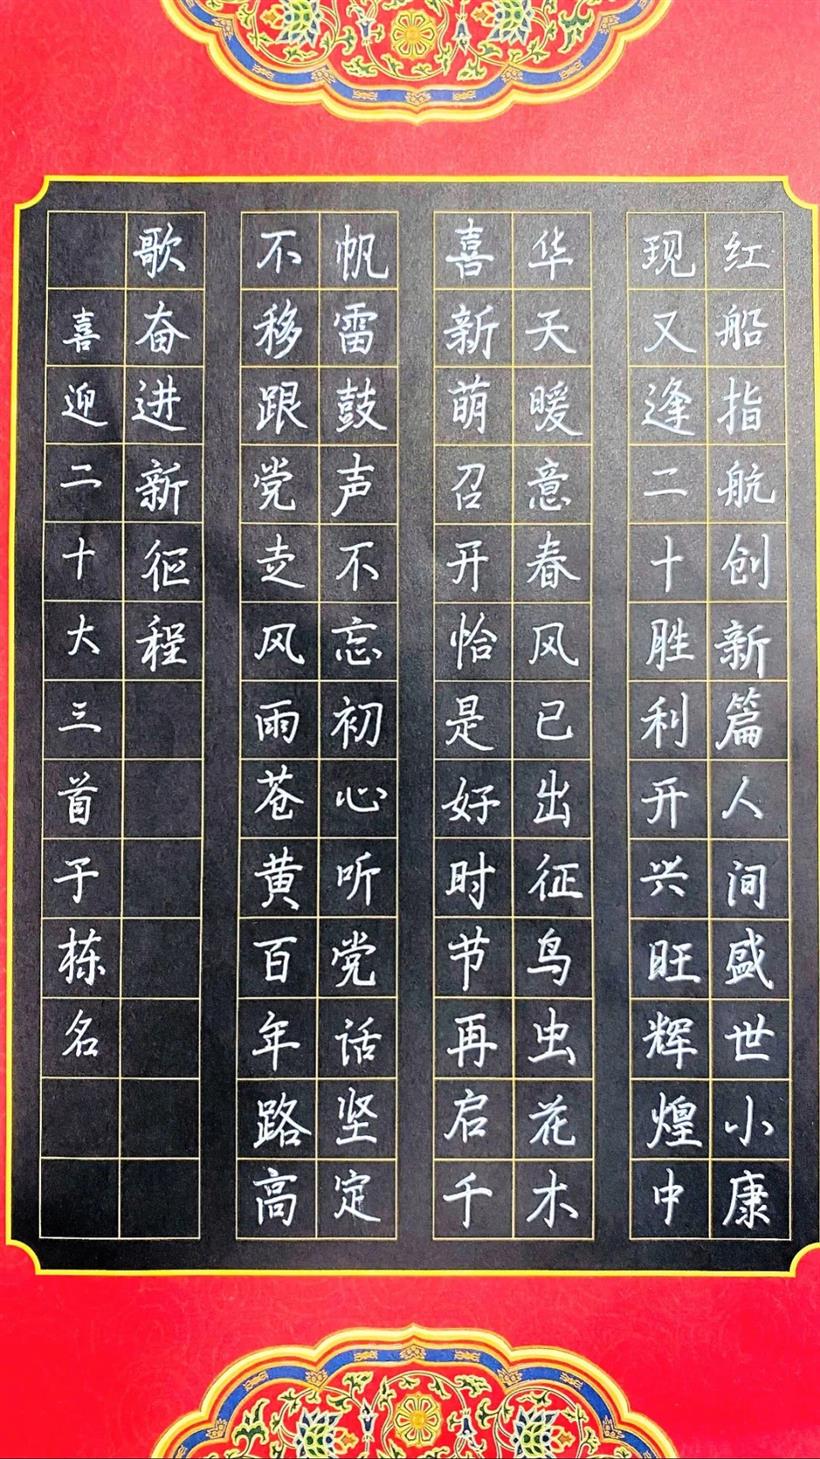 红船指航创新篇人间盛世小康
现又逢二十胜利开兴旺辉煌中
华天暖意春风已出征鸟虫花木
喜新萌召开恰是好时节再启千
帆雷鼓声不忘初心听党话坚定
不移跟党走风雨苍黄百年路高
歌奋进新征程
喜迎二十大三首于栋名